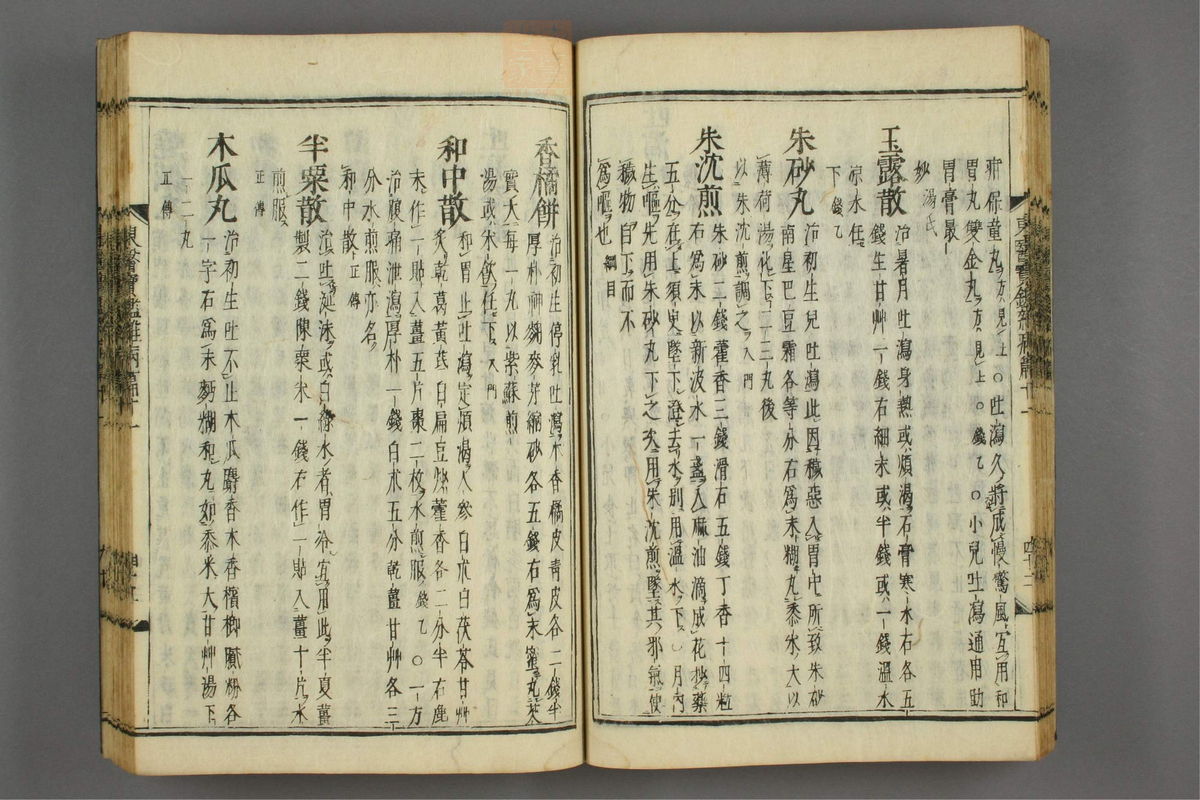 疳保童丸方見上○吐瀉久將成慢驚風宜用和
胃丸雙金丸方見上○錢乙○小兒吐瀉通用助
胃膏最
妙湯氏
玉露散治暑月吐瀉身熱或煩渴石膏寒水石各五
錢生甘艸一錢右細末或半錢或一錢溫水
凉水任
下錢乙
朱砂丸治初生兒吐瀉此因穢惡入胃中所致朱砂
南星巴豆霜各等分右爲末糊丸黍米大以
薄荷湯化下二三丸後
以朱沈煎調之入門
朱沈煎朱砂二錢藿香三錢滑石五錢丁香十四粒
右爲末以新汲水一盞入麻油滴成花抄藥
五分在上須臾墜下澄去水別用溫水下○月內
生嘔先用朱砂丸下之次用朱沈煎墜其邪氣使
穢物自下而不
爲嘔也綱目
香橘餠治初生停乳吐瀉木香橘皮靑皮各二錢半
厚朴神麴麥芽縮砂各五錢右爲末蜜丸芡
實大每一丸以紫蘇煎
湯或米飮任下入門
和中散和胃止吐瀉定煩渴人參白朮白茯苓甘艸
炙乾葛黃芪白扁豆炒藿香各二分半右麁
末作一貼入薑五片棗二枚水煎服錢乙○一方
治腹痛泄瀉厚朴一錢白朮五分乾薑甘艸各三
分水煎服亦名
和中散正傳
半粟散治吐涎沫或白綠水者胃冷宜用此半夏薑
製二錢陳粟米一錢右作一貼入薑十片水
煎服
正傳
木瓜丸治初生吐不止木瓜麝香木香檳榔膩粉各
一字右爲末麪糊和丸如黍米大甘艸湯下
一二丸
正傳
東醫寶鑑雜病篇十一
東醫寶鑑雜病篇十一